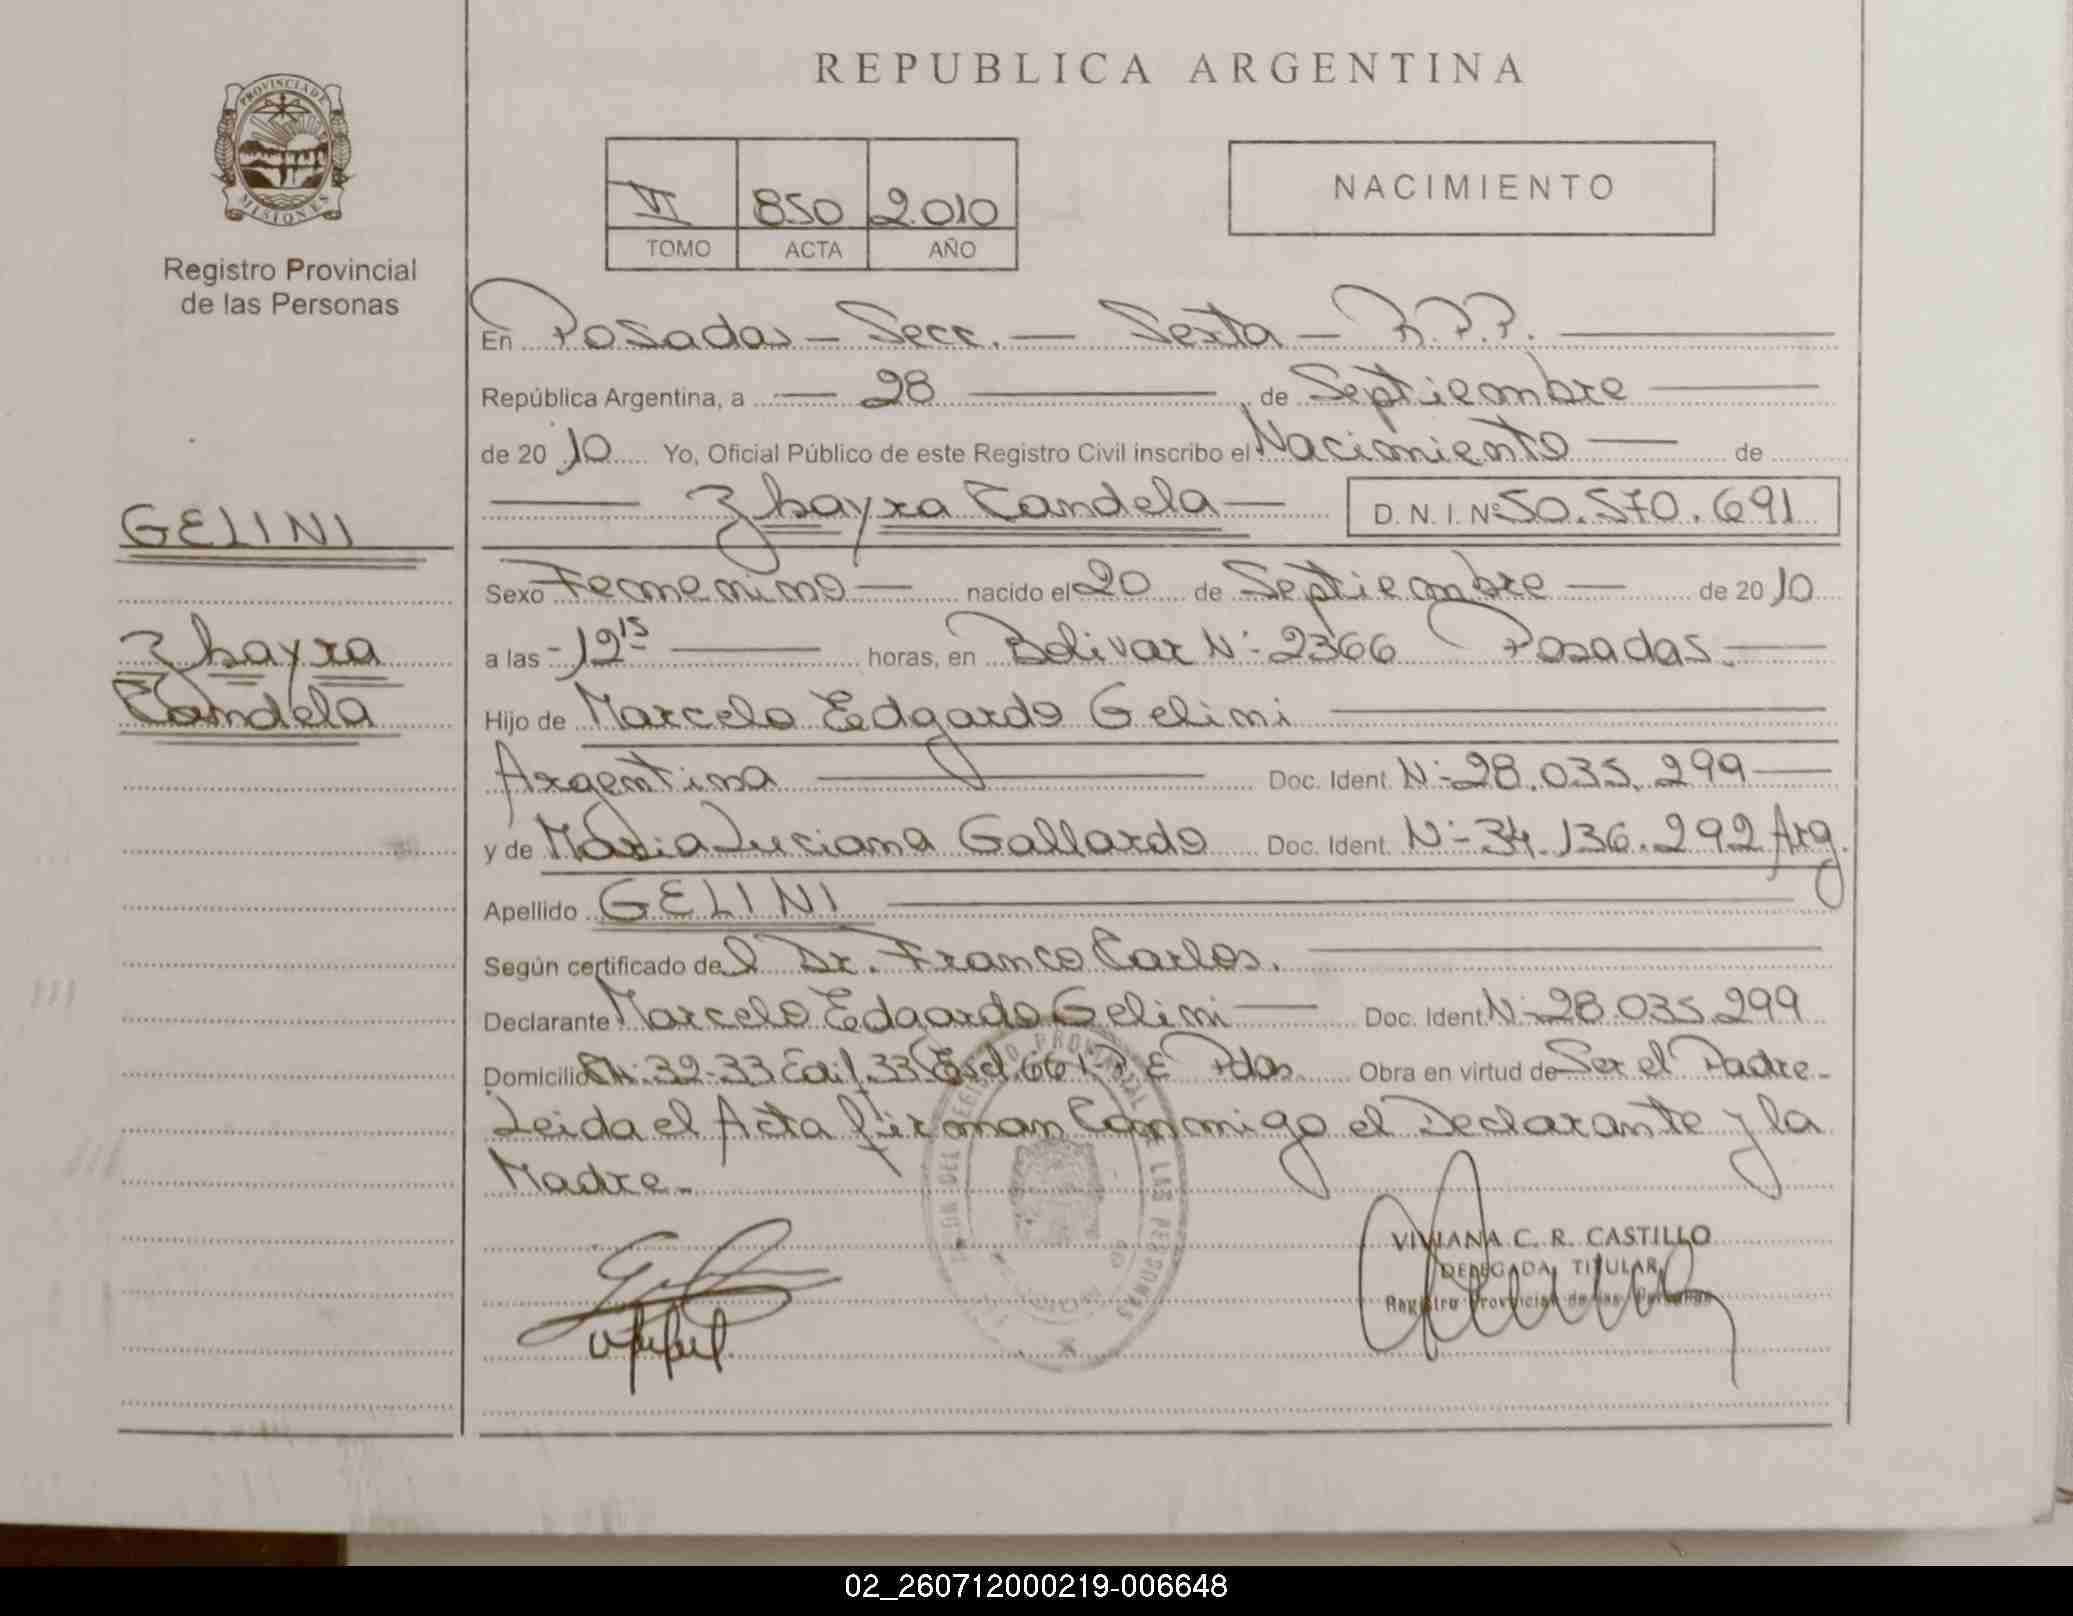 REPUBLICA ARGENTINA
PROVINCIA DE MISIONES
Registro Provincial
de las Personas
VI 850 2.010
TOMO ACTA AÑO
NACIMIENTO
En Posadas – Secc. — Sexta – R.P.P.
República Argentina, a — 28 — de Septiembre
de 20 10 Yo, Oficial Público de este Registro Civil inscribo el Nacimiento — de
— Zhayra Candela — D. N. I. Nº 50.570.691
GELINI
Zhayra
Candela
Sexo Femenino — nacido el 20 de Septiembre — de 20 10
a las - 12 15 — horas, en Bolivar Nº 2366 Posadas. —
Hijo de Marcelo Edgardo Gelini —
Argentina — Doc. Ident. Nº 28.035.299 —
y de Maria Luciana Gallardo Doc. Ident. Nº 34.136.292 Arg.
Apellido GELINI —
Según certificado del Dr. Franco Carlos. —
Declarante Marcelo Edgardo Gelini — Doc. Ident. Nº 28.035.299
Domicilio 32-33 33 Pdas. Obra en virtud de Ser el Padre.-
Leida el Acta firman Conmigo el Declarante y la
Madre.-
VIVIANA C. R. CASTILLO
DELEGADA TITULAR
Registro Provincial de las Personas
REGISTRO PROVINCIAL DE LAS PERSONAS
02_260712000219-006648